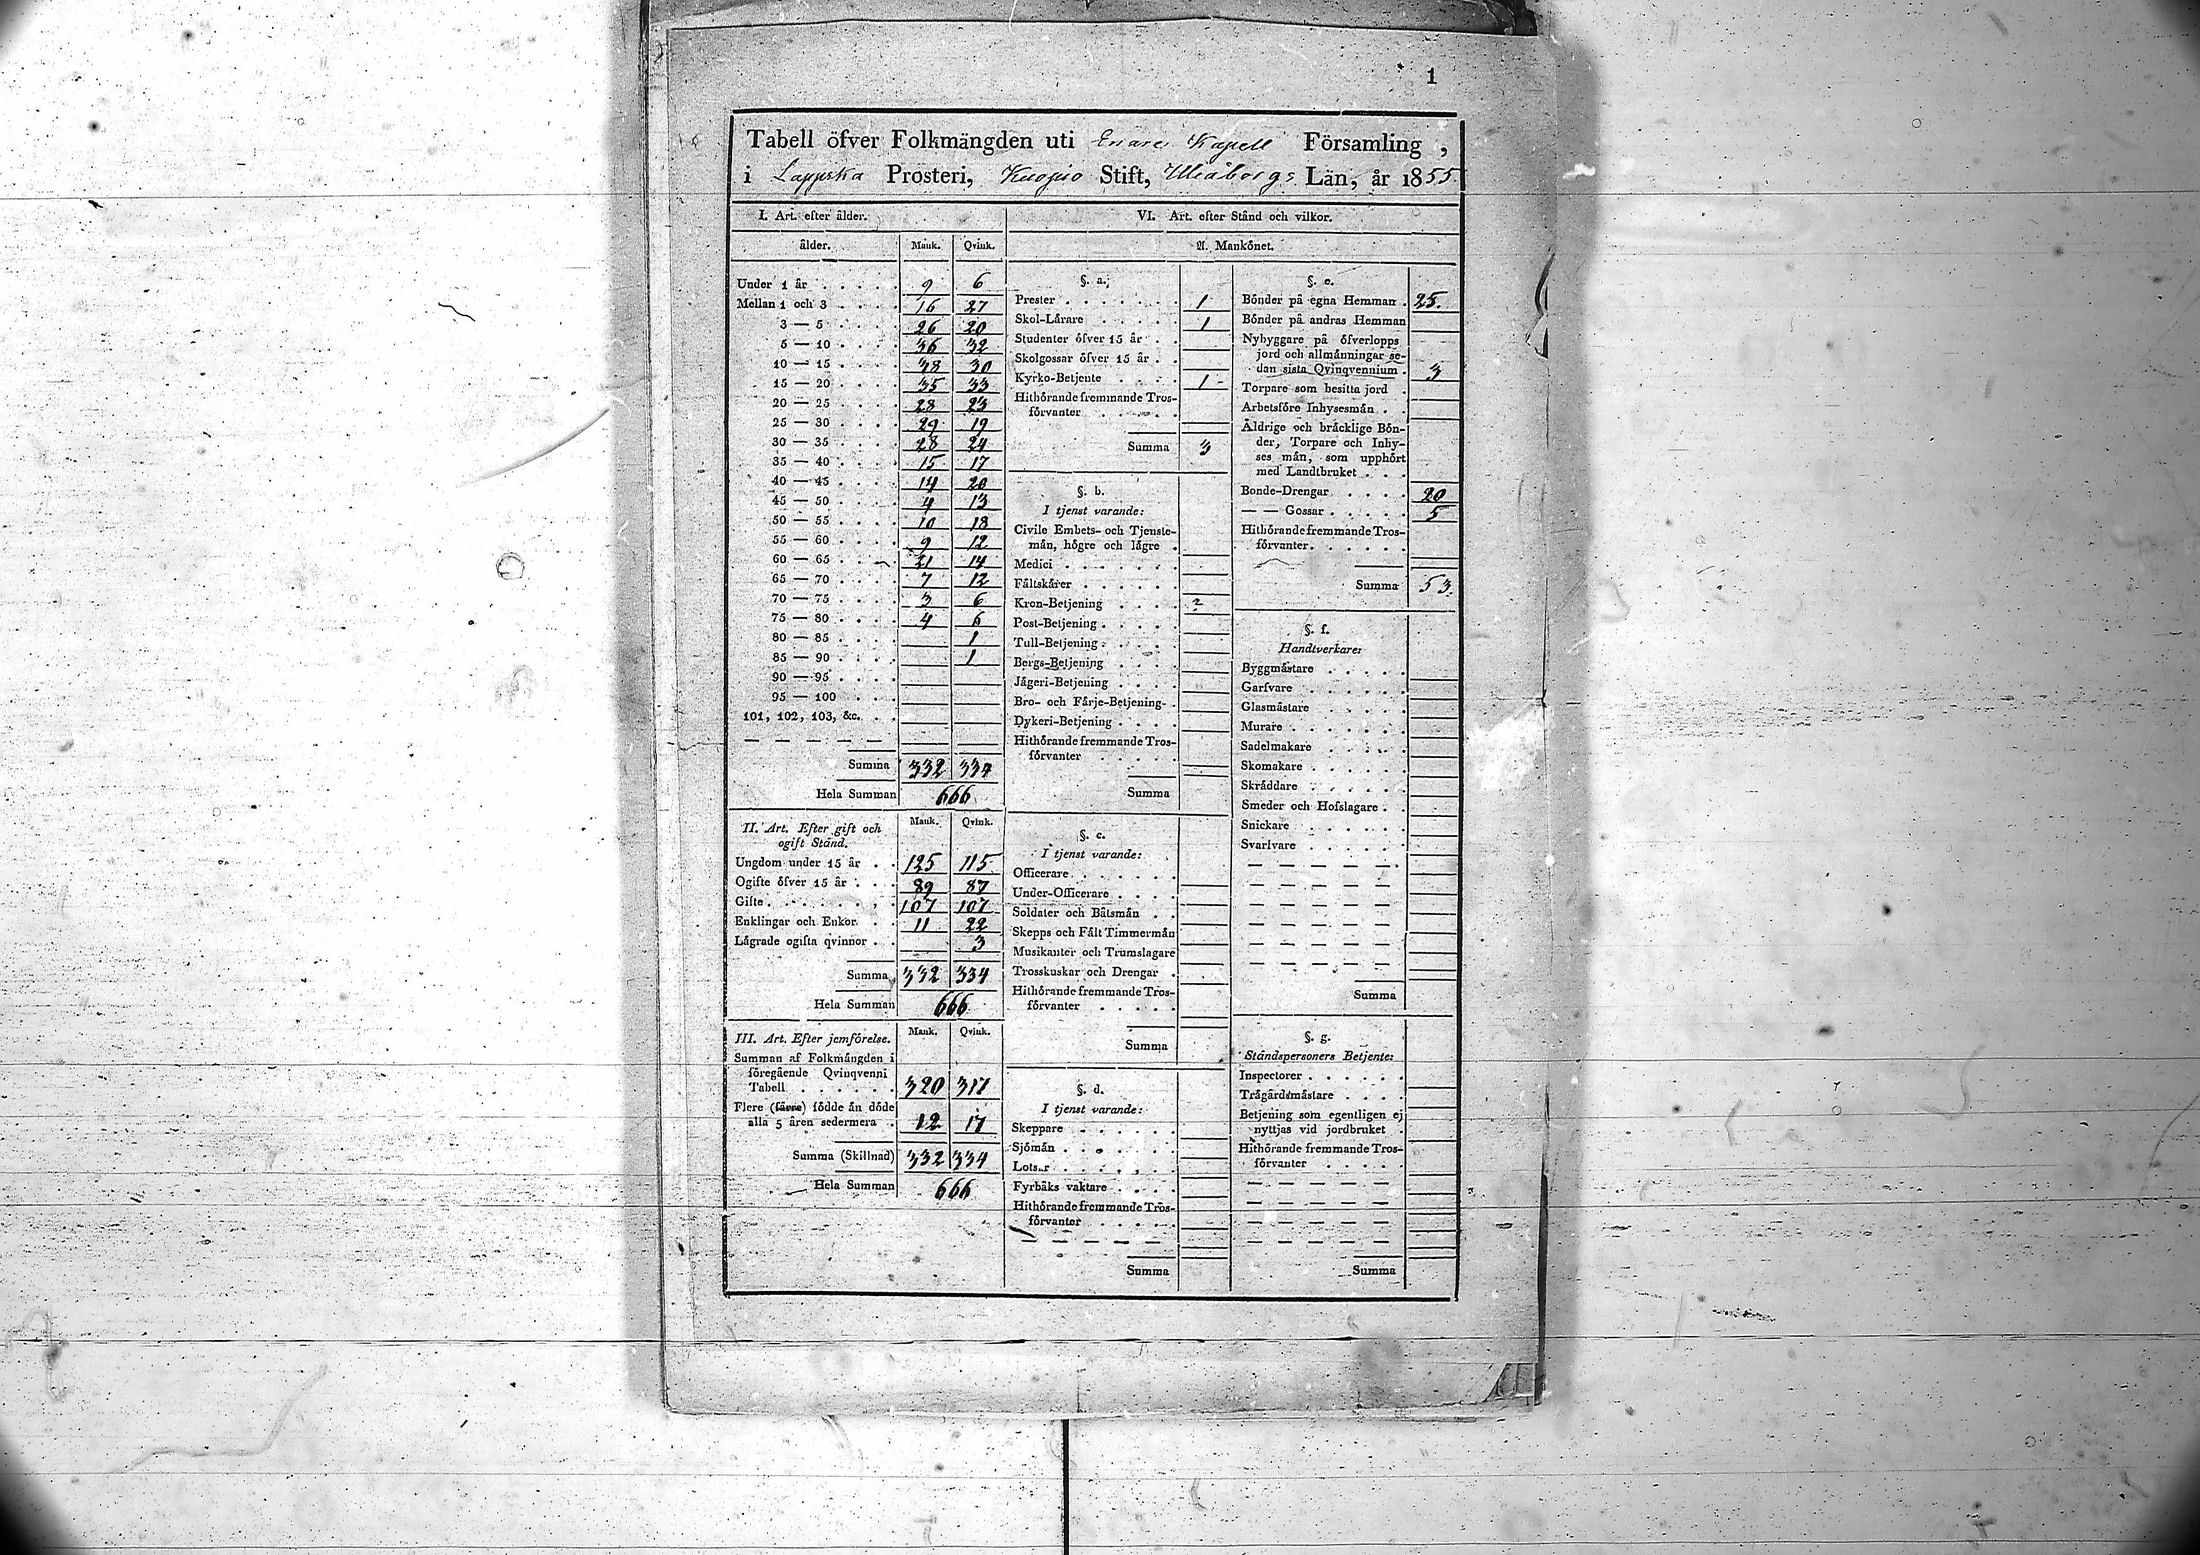 1
Tabell öfver Folkmängden uti Enare Kapell Församling,
i Lappska Prosteri, Kuopio Stift, Uleåborgs Län, år 1855.
I. Art. efter ålder.
ålder. Mank. Qvink.
Under 1 år . . . . . 9 6
Mellan 1 och 3 . . . . 16 27
3 — 5 . . . . 26 20
5 — 10 . . . . 36 32
10 — 15 . . . . 38 30
15 — 20 . . . . 35 33
20 — 25 . . . . 28 23
25 — 30 . . . . 29 19
30 — 35 . . . . 28 24
35 — 40 . . . . 15 17
40 — 45 . . . . 14 20
45 — 50 . . . . 4 13
50 — 55 . . . . 10 18
55 — 60 . . . . 9 12
60 — 65 . . . . 21 14
65 — 70 . . . . 7 12
70 — 75 . . . . 3 6
75 — 80 . . . . 4 6
80 — 85 . . . . 1
85 — 90 . . . . 1
90 — 95 . . . .
95 — 100 . . . .
101, 102, 103, &c. . .
— — — — — —
Summa 332 334
Hela Summan 666
II. Art. Efter gift och Mank. Qvink.
ogift Stånd.
Ungdom under 15 år . . 125 115
Ogifte öfver 15 år . . . 89 87
Gifte . . . . . . . . 107 107
Enklingar och Enkor . . 11 22
Lägrade ogifta qvinnor . . 3
Summa 332 334
Hela Summan 666
III. Art. Efter jemförelse. Mank. Qvink.
Summan af Folkmängden i
föregående Qvinqvenni
Tabell . . . . . . 320 317
Flere (färre) födde än döde
alla 5 åren sedermera . 12 17
Summa (Skillnad) 332 334
Hela Summan 666
VI. Art. efter Stånd och vilkor.
A. Mankönet.
§. a.
Prester . . . . . . . 1
Skol-Lärare . . . . . 1
Studenter öfver 15 år . .
Skolgossar öfver 15 år . .
Kyrko-Betjente . . . . 1
Hithörande fremmande Tros-
förvanter . . . . .
Summa 3
§. b.
I tjenst varande:
Civile Embets- och Tjenste-
män, högre och lägre .
Medici . . . . . . .
Fältskärer . . . . . .
Kron-Betjening . . . . 2
Post-Betjening . . . . .
Tull-Betjening . . . . .
Bergs-Betjening . . . .
Jägeri-Betjening . . . .
Bro- och Färje-Betjening .
Dykeri-Betjening . . . .
Hithörande fremmande Tros-
förvanter . . . . .
Summa
§. c.
I tjenst varande:
Officerare . . . . . . .
Under-Officerare . . . .
Soldater och Båtsmän . .
Skepps och Fält Timmermän
Musikanter och Trumslagare
Trosskuskar och Drengar .
Hithörande fremmande Tros-
förvanter . . . . .
Summa
§. d.
I tjenst varande:
Skeppare . . . . . .
Sjömän . . . . . . .
Lotsar . . . . . . .
Fyrbåks vaktare . . . .
Hithörande fremmande Tros-
förvanter . . . . .
— — — — — —
Summa
§. e.
Bönder på egna Hemman . 25.
Bönder på andras Hemman
Nybyggare på öfverlopps
jord och allmänningar se-
dan sista Qvinqvennium . 3
Torpare som besitta jord .
Arbetsföre Inhysesmän . .
Äldrige och bräcklige Bön-
der, Torpare och Inhy-
ses män, som upphört
med Landtbruket . . .
Bonde-Drengar . . . . . 20
— — Gossar . . . . . 5
Hithörande fremmande Tros-
förvanter . . . . . .
Summa 53.
§. f.
Handtverkare:
Byggmästare . . . . .
Garfvare . . . . . .
Glasmästare . . . . .
Murare . . . . . . .
Sadelmakare . . . . .
Skomakare . . . . . .
Skräddare . . . . . .
Smeder och Hofslagare . .
Snickare . . . . . .
Svarfvare . . . . . .
— — — — — —
— — — — — —
— — — — — —
— — — — — —
— — — — — —
— — — — — —
Summa
§. g.
Ståndspersoners Betjente:
Inspectorer . . . . . .
Trägårdsmästare . . . .
Betjening som egentligen ej
nyttjas vid jordbruket .
Hithörande fremmande Tros-
förvanter . . . . .
— — — — — —
— — — — — —
— — — — — —
— — — — — —
Summa